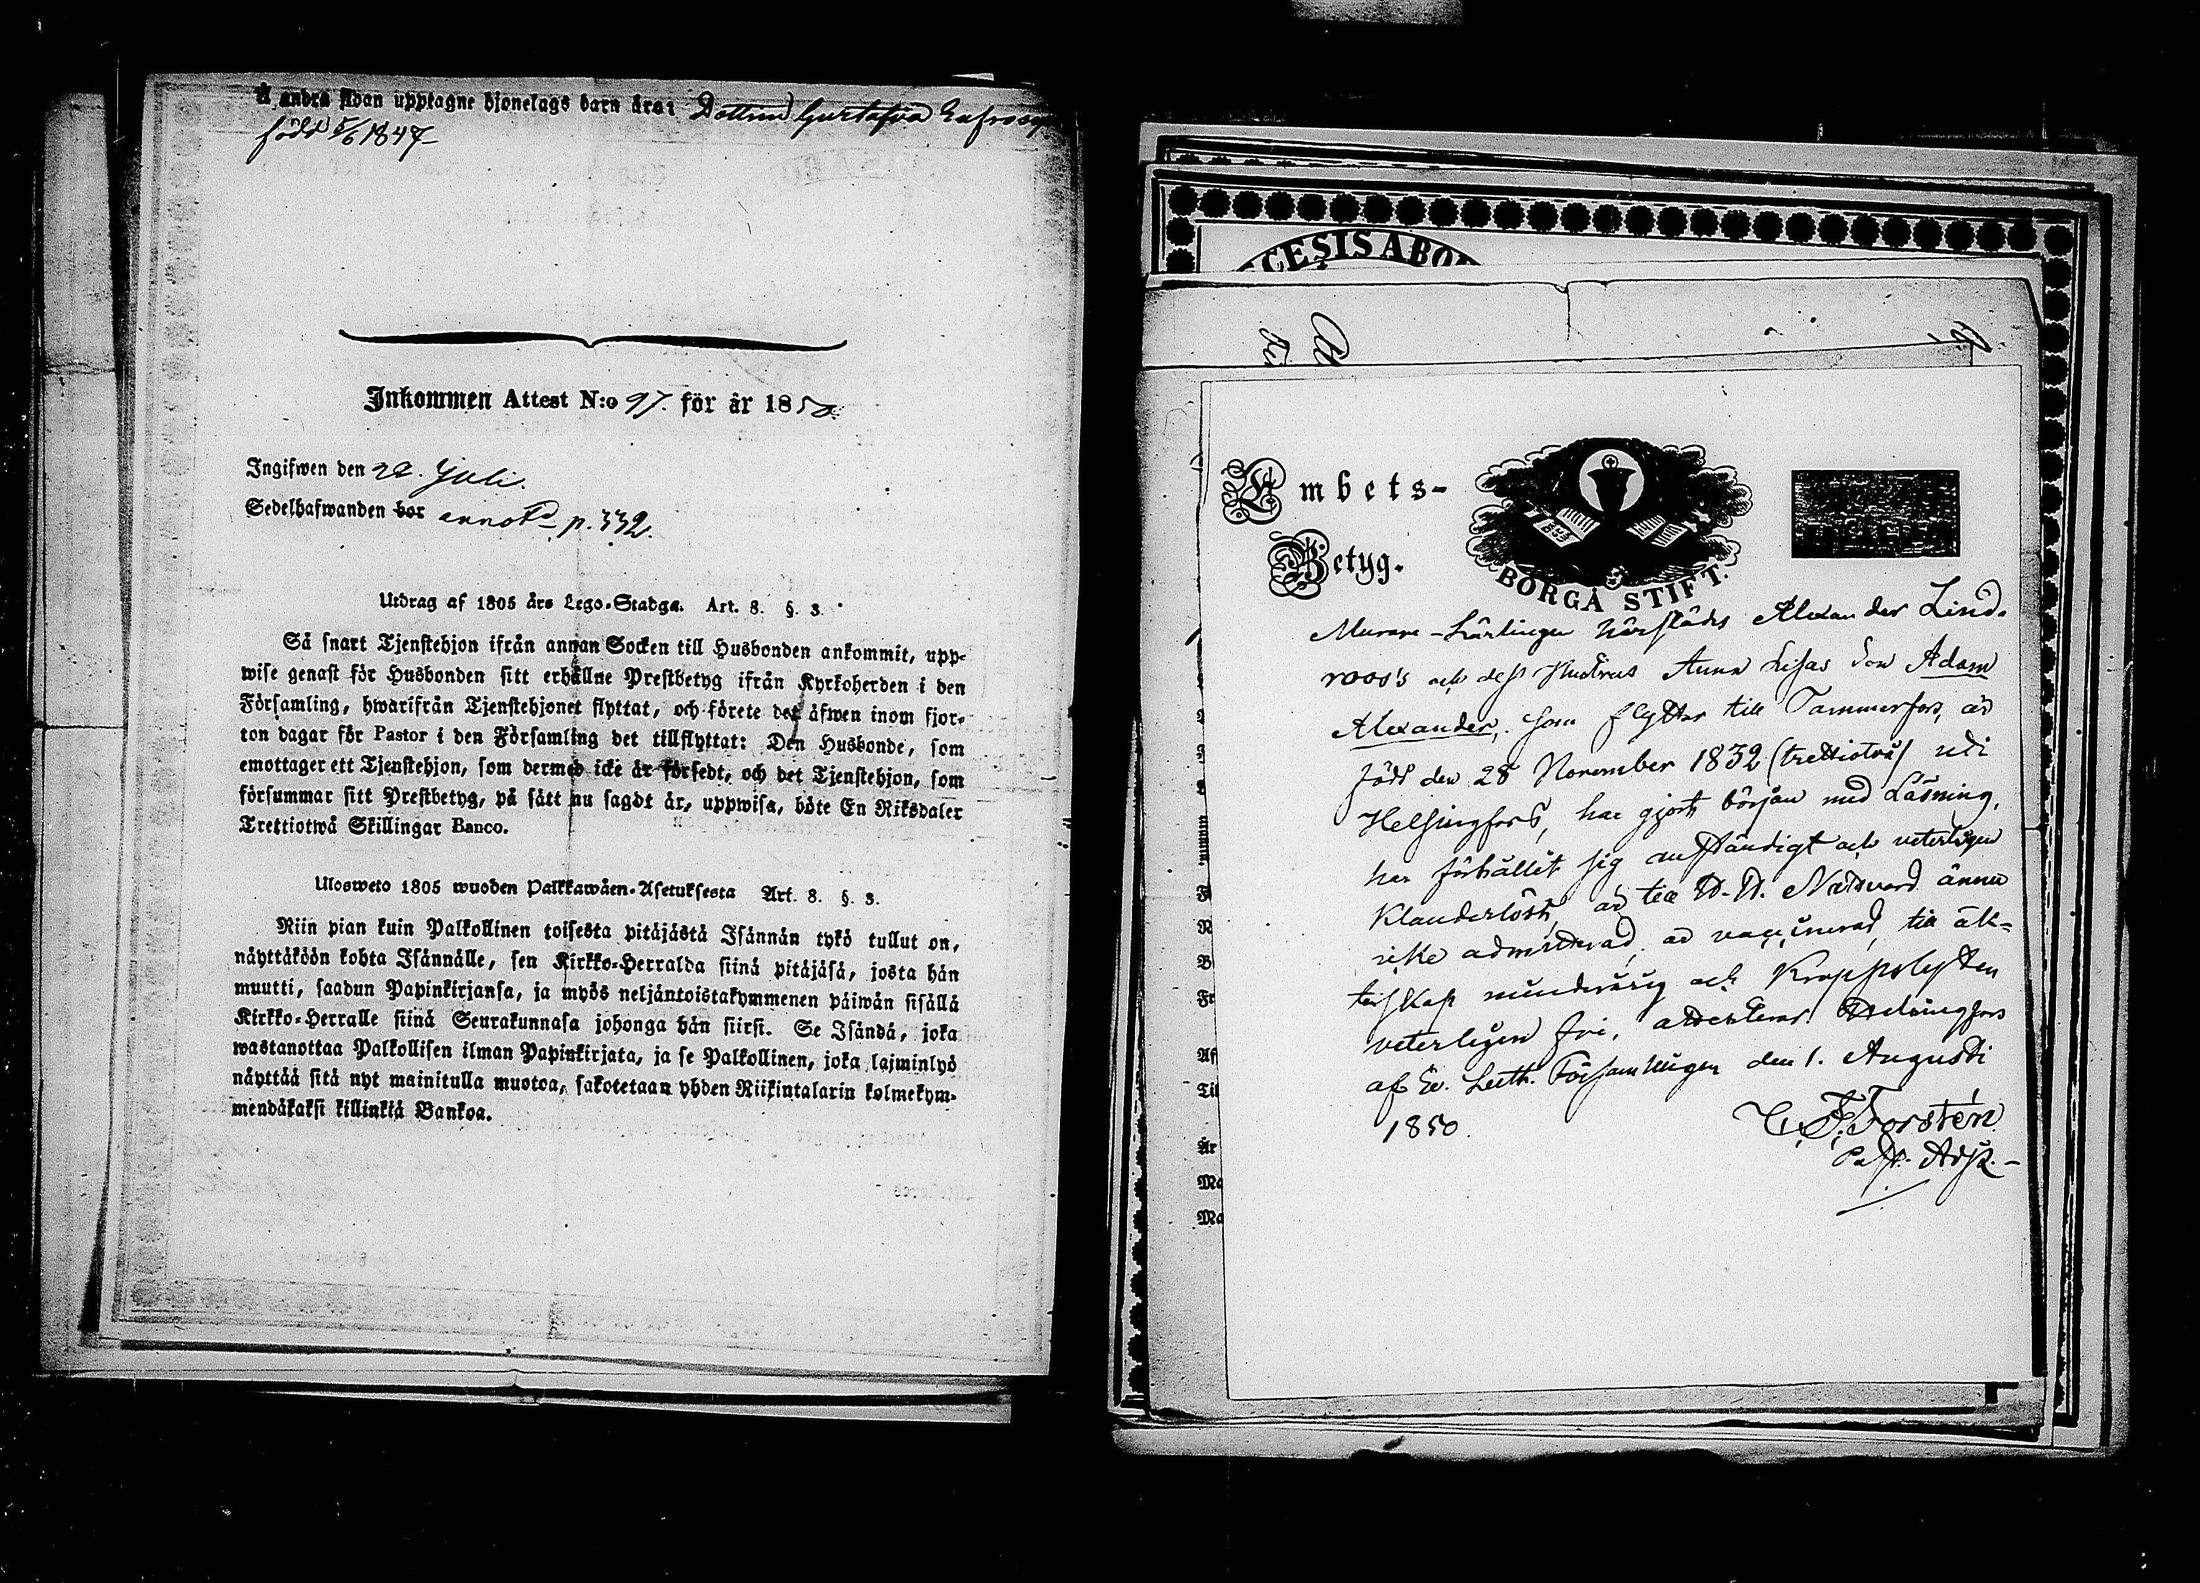 Å andra sidan upptagne hjonelags barn äro: Dottren Gustafva Eufrosy
född 5/6 1847
Inkommen Attest N:o 97. för år 1850.
Ingifwen den 22. Juli.
Sedelhafwanden bor annot. p. 332.
Utdrag af 1805 års Lego-Stadga. Art. 8. §. 3.
Så snart Tjenstehjon ifrån annan Socken till Husbonden ankommit, upp-
wise genast för Husbonden sitt erhållne Prestbetyg ifrån Kyrkoherden i den
Församling, hwarifrån Tjenstehjonet flyttat, och förete det äfwen inom fjor-
ton dagar för Pastor i den Församling det tillflyttat: Den Husbonde, som
emottager ett Tjenstehjon, som dermed icke är försedt, och det Tjenstehjon, som
försummar sitt Prestbetyg, på sätt nu sagdt är, uppwisa, böte En Riksdaler
Trettiotwå Skillingar Banco.
Ulosweto 1805 wuoden Palkkawäen-Asetuksesta Art. 8. §. 3.
Niin pian kuin Palkollinen toisesta pitäjästä Isännän tykö tullut on,
näyttäköön kohta Isännälle, sen Kirkko-Herralda siinä pitäjäsä, josta hän
muutti, saadun Papinkirjansa, ja myös neljäntoistakymmenen päiwän sisällä
Kirkko-Herralle siinä Seurakunnasa johonga hän siirsi. Se Isändä, joka
wastanottaa Palkollisen ilman Papinkirjata, ja se Palkollinen, joka lajminlyö
näyttää sitä nyt mainitulla muotoa, sakotetaan yhden Riikintalarin kolmekym-
mendäkaksi killinkiä Bankoa.
CESIS ABO
Embets-
Betyg.
BORGÅ STIFT.
Murare-Lärlingen härstädes Alexander Lind-
roos's och dess Hustrus Anna Lisas Son Adam
Alexander, som flyttar till Tammerfors, är
född den 28 November 1832 (trettiotvå) uti
Helsingfors, har gjort början med Läsning,
har förhållit sig anständigt och veterligen
Klanderlöst, är till H. H. Nattvard ännu
icke admitterad, är vaccinerad, till äk-
tenskap minderårig och Kroppslyten
veterligen fri, attesterar Helsingfors
af Ev. Luth. Församlingen den 1. Augusti
1850.
C. F. Forstén
Past. Adj.
Af
Til
År
Ma
Ma